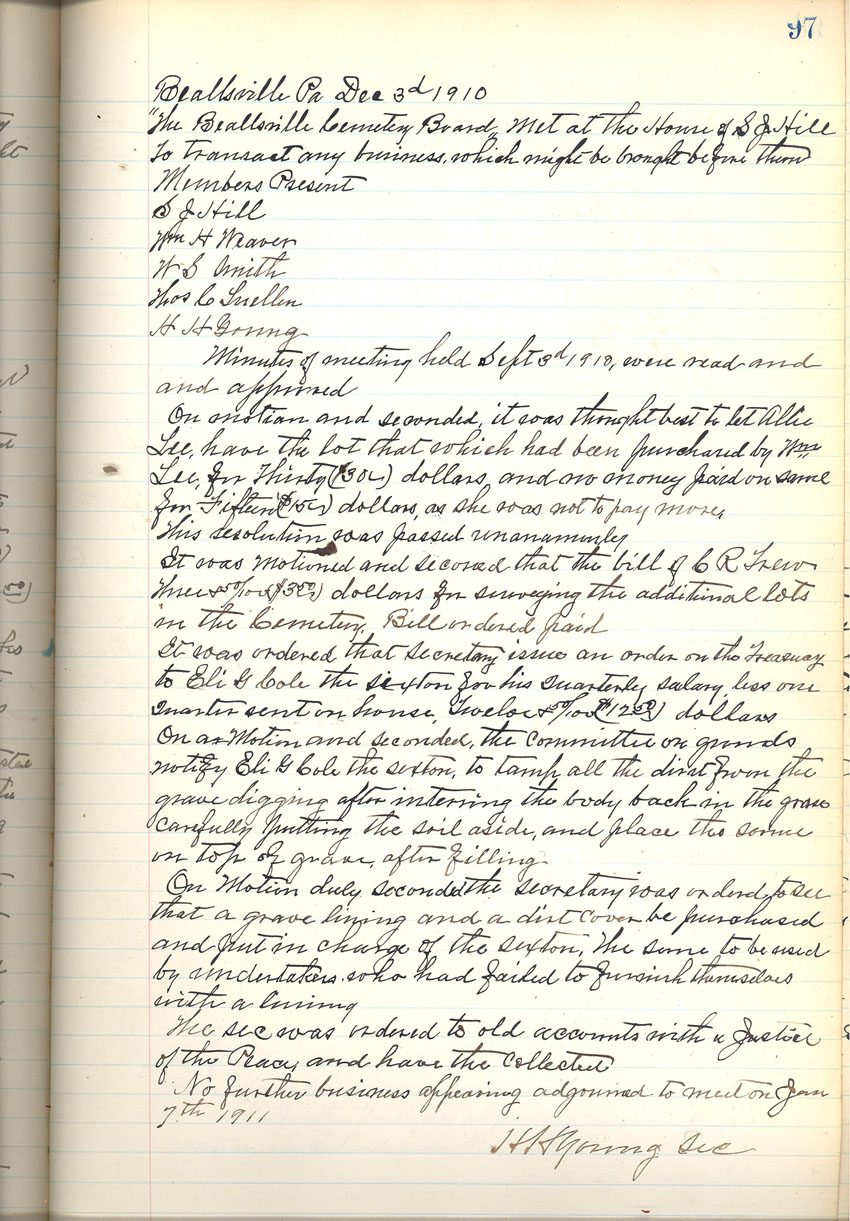 97
Beallsville Pa Dec 3d 1910
"The Beallsville Cemetery Board" Met at the House of S J Hill
To transact any business, which might be brought before them
Members Present
S J Hill
Wm H Weaver
W S Smith
Thos C Luellen
H H Young
Minutes of meeting held Sept 3d 1910, were read and
and approved
On motion and seconded, it was thought best to let Allie
Lee, have the lot that which had been purchased by Wm
Lee, for Thirty ($30 ) dollars, and no money paid on same
for Fifteen ($15 ) dollars, as she was not to pay more,
This resolution was passed unanamunly
It was Motioned and seconed that the bill of C R Trew
Three & 50/100 ($3 50) dollars for surveying the additional lots
in the Cemetery, Bill ordered paid
It was ordered that secretary issue an order on the Treasury
to Eli G Cole the sexton for his quarterly salary, less one
quarter rent on house, Twelve & 50/100 ($12 50) dollars
On a Motion and seconded, the committee on grounds
notify Eli G Cole the sexton, to tamp all the dirt from the
grave digging after interring the body back in the grave
carefully putting the soil aside, and place the same
on top of grave, after filling
On Motion duly seconded the secretary was orderd, to see
that a grave lining and a dirt cover be purchased
and put in charge of the sexton, the same to be used
by undertakers who had failed to furnish themselves
with a lining
The sec was ordered to old accounts with a Justice
of the Peace, and have the collected
No further business appearing adgourned to meet on Jan
7th 1911
H H Young Sec